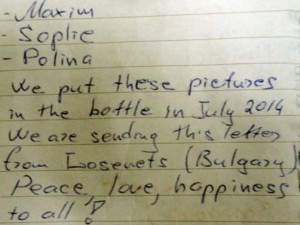 - Maxim
- Soplie
- Polina
We put these pictures
in the bottle in July 2014
We are sending this letter
from Losenets (Bulgary)
Peace, love, happiness
to all!